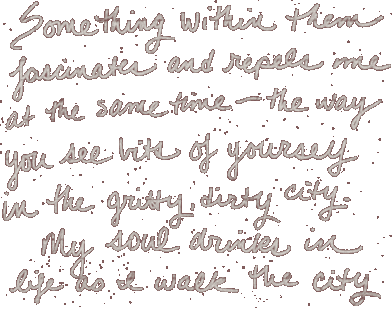 Something within them
fascinates and repels me
at the same time - the way
you see bits of yourself
in the gritty, dirty city.
My soul drinks in
life as I walk the city